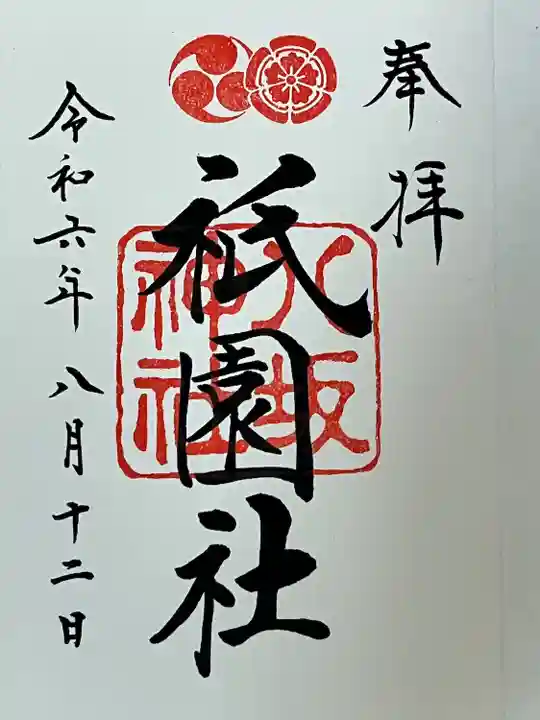 奉拝
八坂
神社
祇園社
令和六年八月十二日